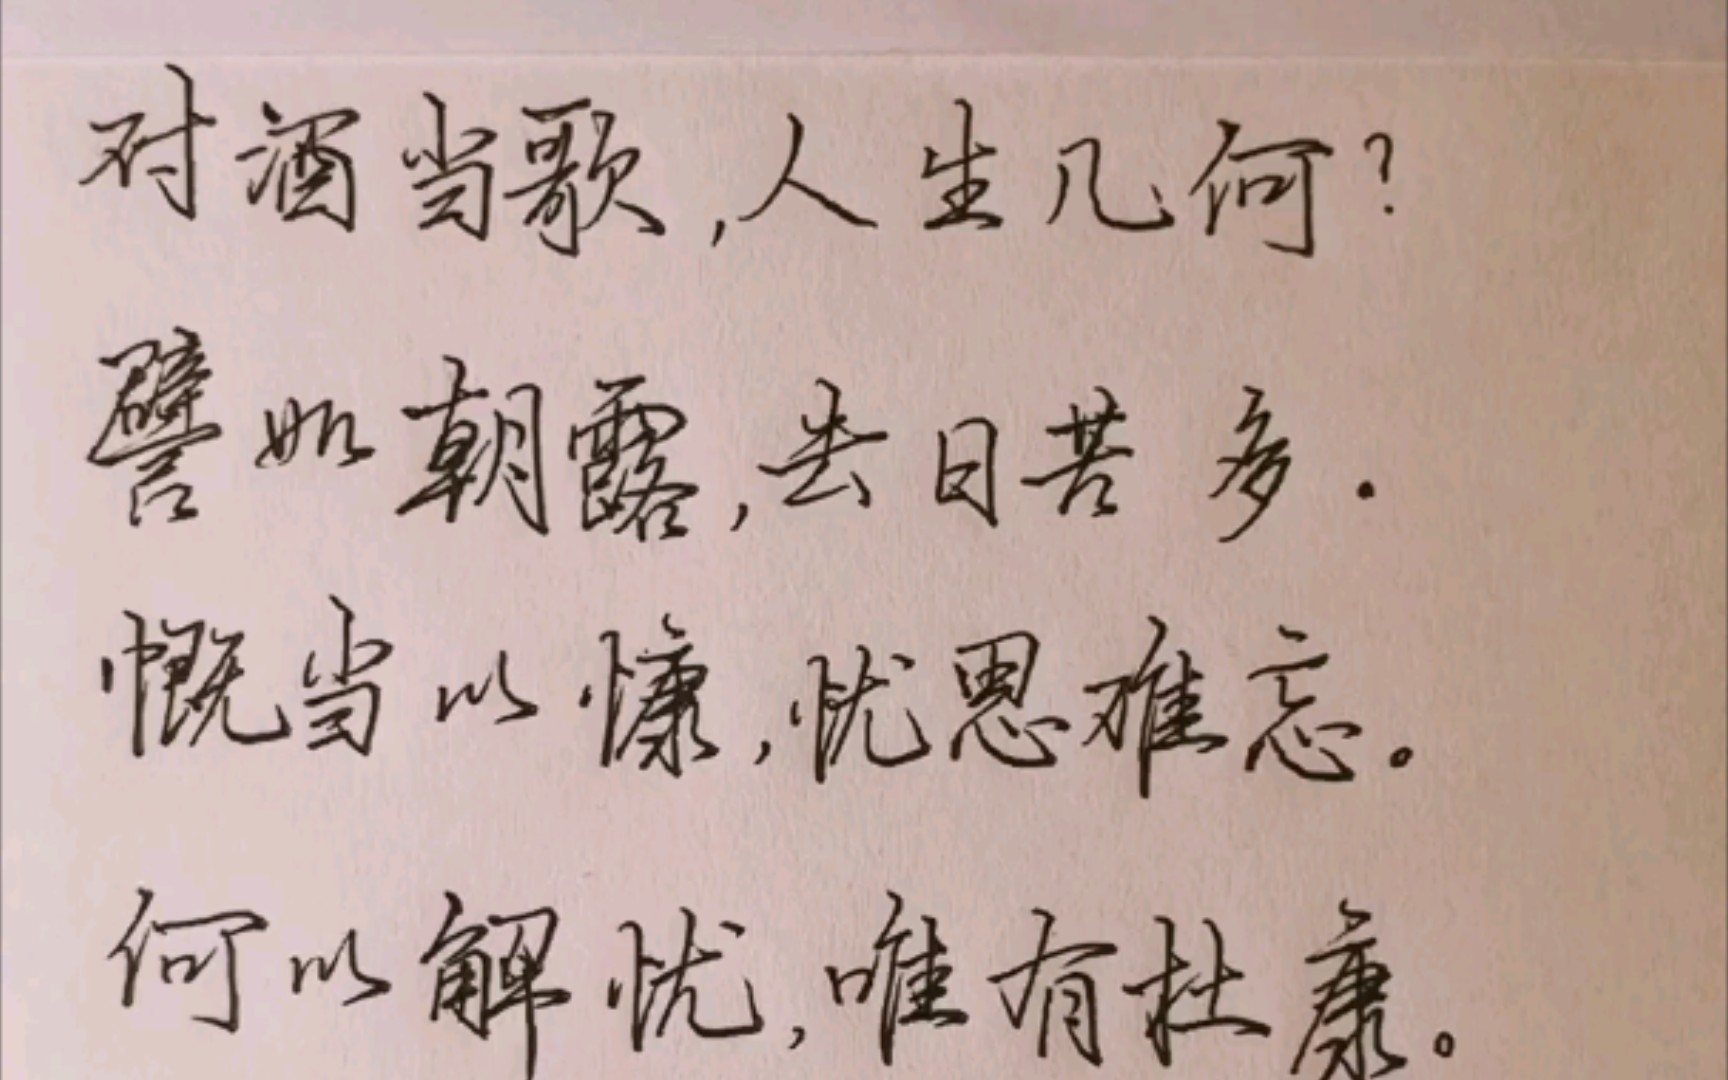 对酒当歌,人生几何?
譬如朝露,去日苦多.
慨当以慷,忧思难忘。
何以解忧,唯有杜康。